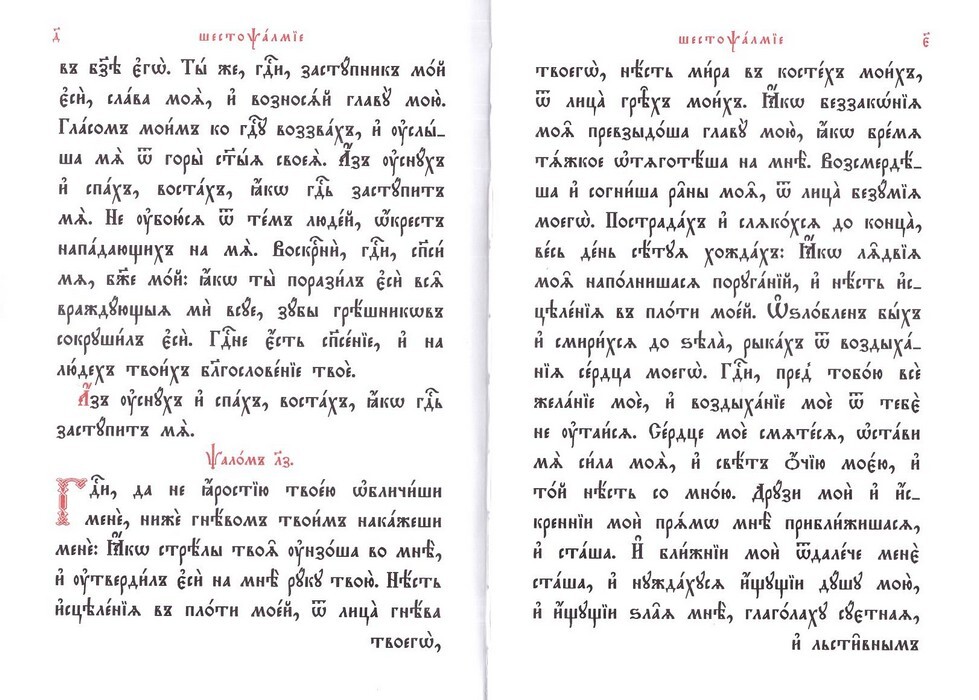 д҃
шестоѱа́лмїе
въ бз҃ѣ є҆гѡ̀. Ты́ же, гдⷭ҇и, застꙋ́пникъ мо́й
є҆сѝ, сла́ва моѧ̀, и҆ возносѧ́й главꙋ̀ мою̀.
Гла́сомъ мои́мъ ко гдⷭ҇ꙋ воззва́хъ, и҆ ᲂу҆слы́_
ша мѧ̀ ѿ горы̀ ст҃ы́ѧ своеѧ̀. А҆́зъ ᲂу҆снꙋ́хъ
и҆ спа́хъ, воста́хъ, ꙗ҆́кѡ гдⷭ҇ь застꙋ́питъ
мѧ̀. Не ᲂу҆бою́сѧ ѿ те́мъ люде́й, ѡ҆́крестъ
напа́дающихъ на мѧ̀. Воскрⷭ҇нѝ, гдⷭ҇и, сп҃си́
мѧ, бж҃е мо́й: ꙗ҆́кѡ ты̀ порази́лъ є҆сѝ всѧ̑
враждꙋ́ющыѧ мѝ всꙋ́е, зꙋ́бы грѣ́шникѡвъ
сокрꙋши́лъ є҆сѝ. Гдⷭ҇не є҆́сть сп҃се́нїе, и҆ на
лю́дехъ твои́хъ бл҃гослове́нїе твоѐ.
А҆́зъ ᲂу҆снꙋ́хъ и҆ спа́хъ, воста́хъ, ꙗ҆́кѡ гдⷭ҇ь
застꙋ́питъ мѧ̀.
Ѱало́мъ л҃з.
Гдⷭ҇и, да не ꙗ҆́ростїю твое́ю ѡ҆бличи́ши
менѐ, нижѐ гнѣ́вомъ твои́мъ нака́жеши
менѐ: Ꙗ҆́кѡ стрѣ́лы твоѧ̑ ᲂу҆нзо́ша во мнѣ̀,
и҆ ᲂу҆тверди́лъ є҆сѝ на мнѣ̀ рꙋ́кꙋ твою̀. Нѣ́сть
и҆сцѣле́нїѧ въ пло́ти мое́й, ѿ лица̀ гнѣ́ва
твоегѡ̀,
є҃
шестоѱа́лмїе
твоегѡ̀, нѣ́сть ми́ра въ косте́хъ мои́хъ,
ѿ лица̀ грѣ̑хъ мои́хъ. Ꙗ҆́кѡ беззакѡ́нїѧ
моѧ̑ превзыдо́ша главꙋ̀ мою̀, ꙗ҆́кѡ бре́мѧ
тѧ́жкое ѡ҆тѧготѣ́ша на мнѣ̀. Возсмердѣ́_
ша и҆ согни́ша ра̑ны моѧ̑, ѿ лица̀ безꙋ́мїѧ
моегѡ̀. Пострада́хъ и҆ слѧко́хсѧ до конца̀,
ве́сь де́нь сѣ́тꙋѧ хожда́хъ: Ꙗ҆́кѡ лѧ̑двїѧ
моѧ̑ напо́лнишасѧ порꙋга́нїй, и҆ нѣ́сть и҆с_
цѣле́нїѧ въ пло́ти мое́й. Ѡ҆ѕло́бленъ бы́хъ
и҆ смири́хсѧ до ѕѣла̀, рыка́хъ ѿ воздыха́_
нїѧ се́рдца моегѡ̀. Гдⷭ҇и, пред̾ тобо́ю всѐ
жела́нїе моѐ, и҆ воздыха́нїе моѐ ѿ тебє̀
не ᲂу҆таи́сѧ. Се́рдце моѐ смѧте́сѧ, ѡ҆ста́ви
мѧ̀ си́ла моѧ̀, и҆ свѣ́тъ ѻ҆́чїю моє́ю, и҆
то́й нѣ́сть со мно́ю. Дрꙋ́зи моѝ и҆ и҆́с_
креннїи моѝ прѧ́мѡ мнѣ̀ прибли́жишасѧ,
и҆ ста́ша. И҆ бли́жнїи моѝ ѿдале́че менє̀
ста́ша, и҆ нꙋжда́хꙋсѧ и҆́щꙋщїи дꙋ́шꙋ мою̀,
и҆ и҆́щꙋщїи ѕла̑ѧ мнѣ̀, глаго́лахꙋ сꙋ́єтнаѧ,
и҆ льсти̑внымъ